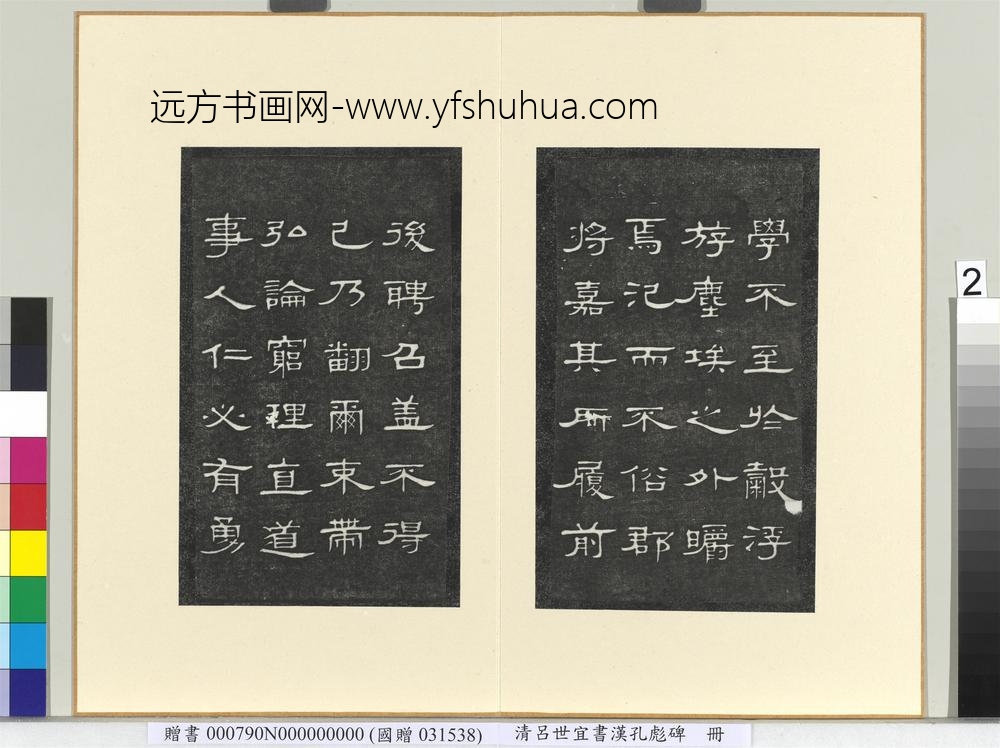 远方书画网-www.yfshuhua.com
學不至於穀浮
游塵埃之外皭
焉氾而不俗郡
將嘉其所履前
後聘召盖不得
已乃翻爾束帶
弘論窮理直道
事人仁必有勇
2
贈書 000790N000000000 (國贈 031538) 清呂世宜書漢孔彪碑 冊